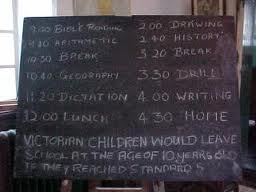 9.00 BIBLE READING
9.40 ARITHMETIC
10.30 BREAK
10.40 GEOGRAPHY
11.20 DICTATION
12.00 LUNCH
2.00 DRAWING
2.40 HISTORY
3.20 BREAK
3.30 DRILL
4.00 WRITING
4.30 HOME
VICTORIAN CHILDREN WOULD LEAVE
SCHOOL AT THE AGE OF 10 YEARS OLD
IF THEY REACHED STANDARD 5